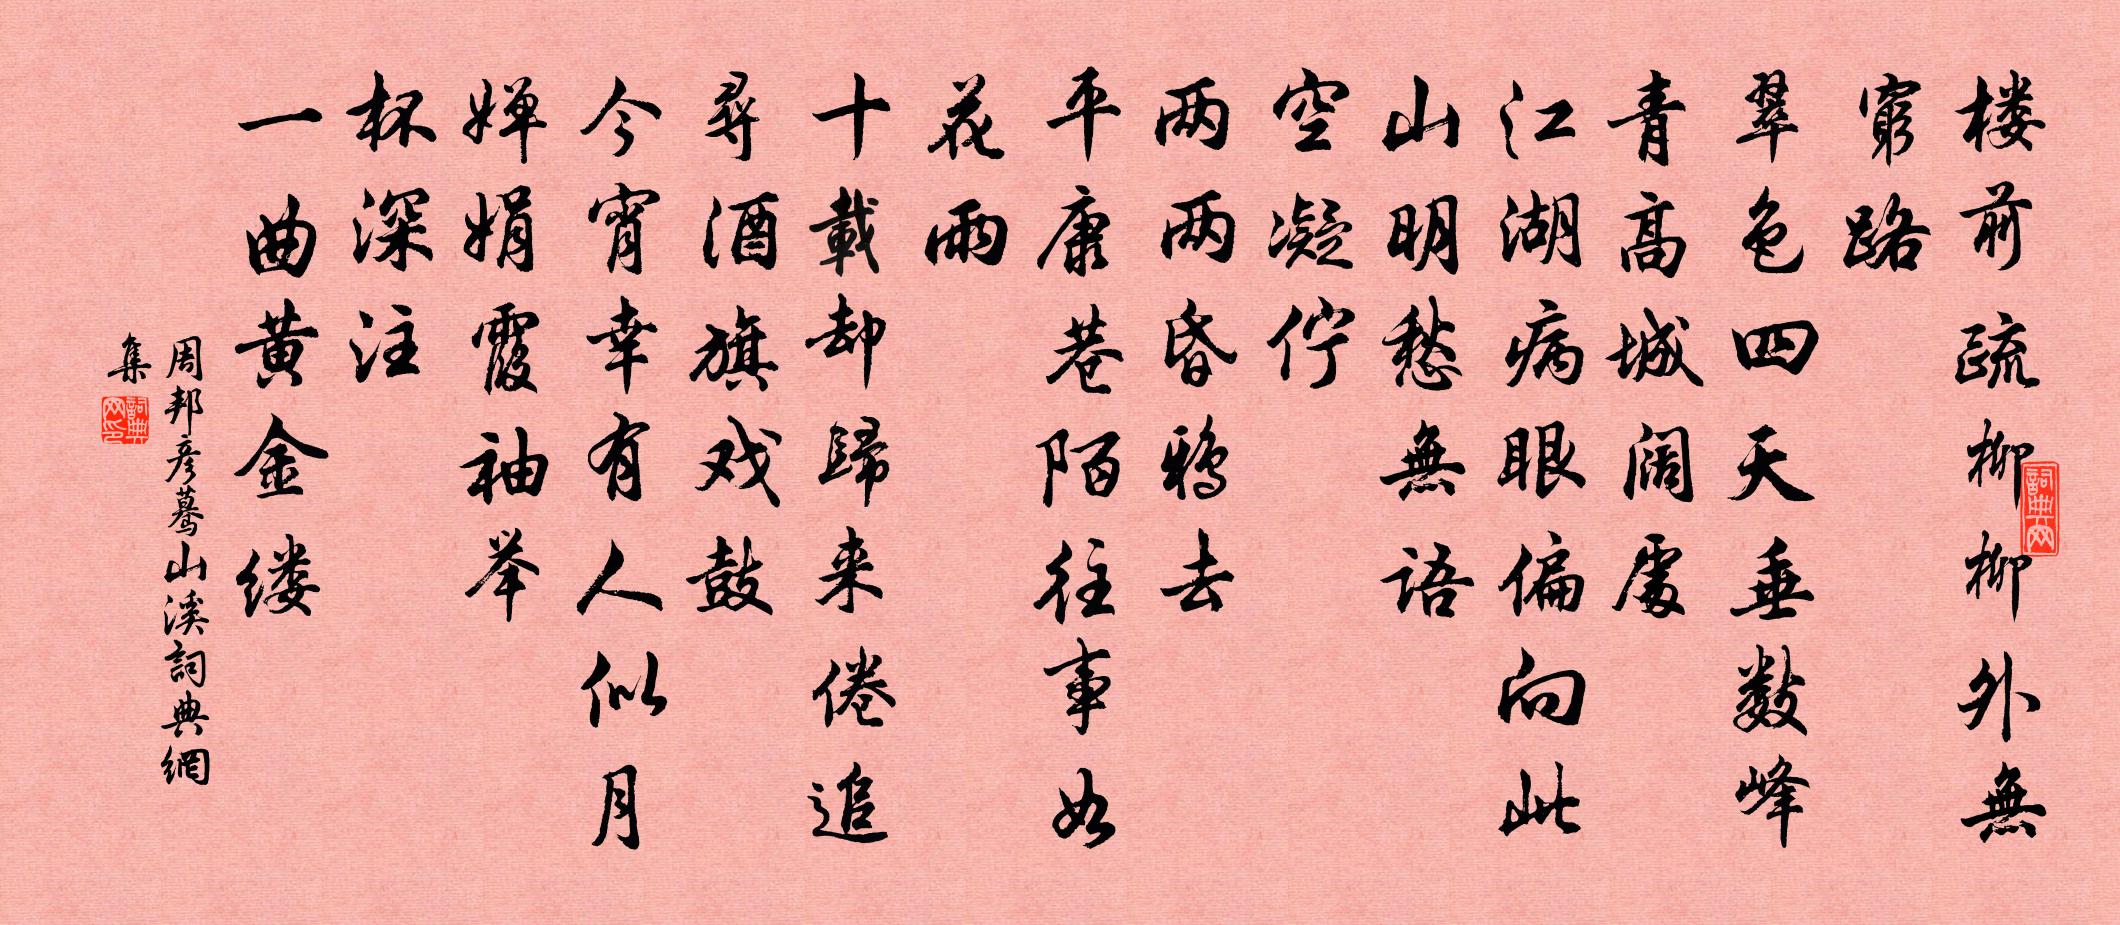 楼前疏柳柳外無
窮路
翠色四天垂數峰
青高城阔處
江湖病眼偏向此
山明愁無语
空凝伫
两两昏鸦去
平康巷陌往事如
花雨
十載却歸来倦追
尋酒旗戏鼓
今宵幸有人似月
婵娟霞袖举
杯深注
一曲黄金缕
周邦彦蓦山溪詞典網
集
詞典网
詞典网印